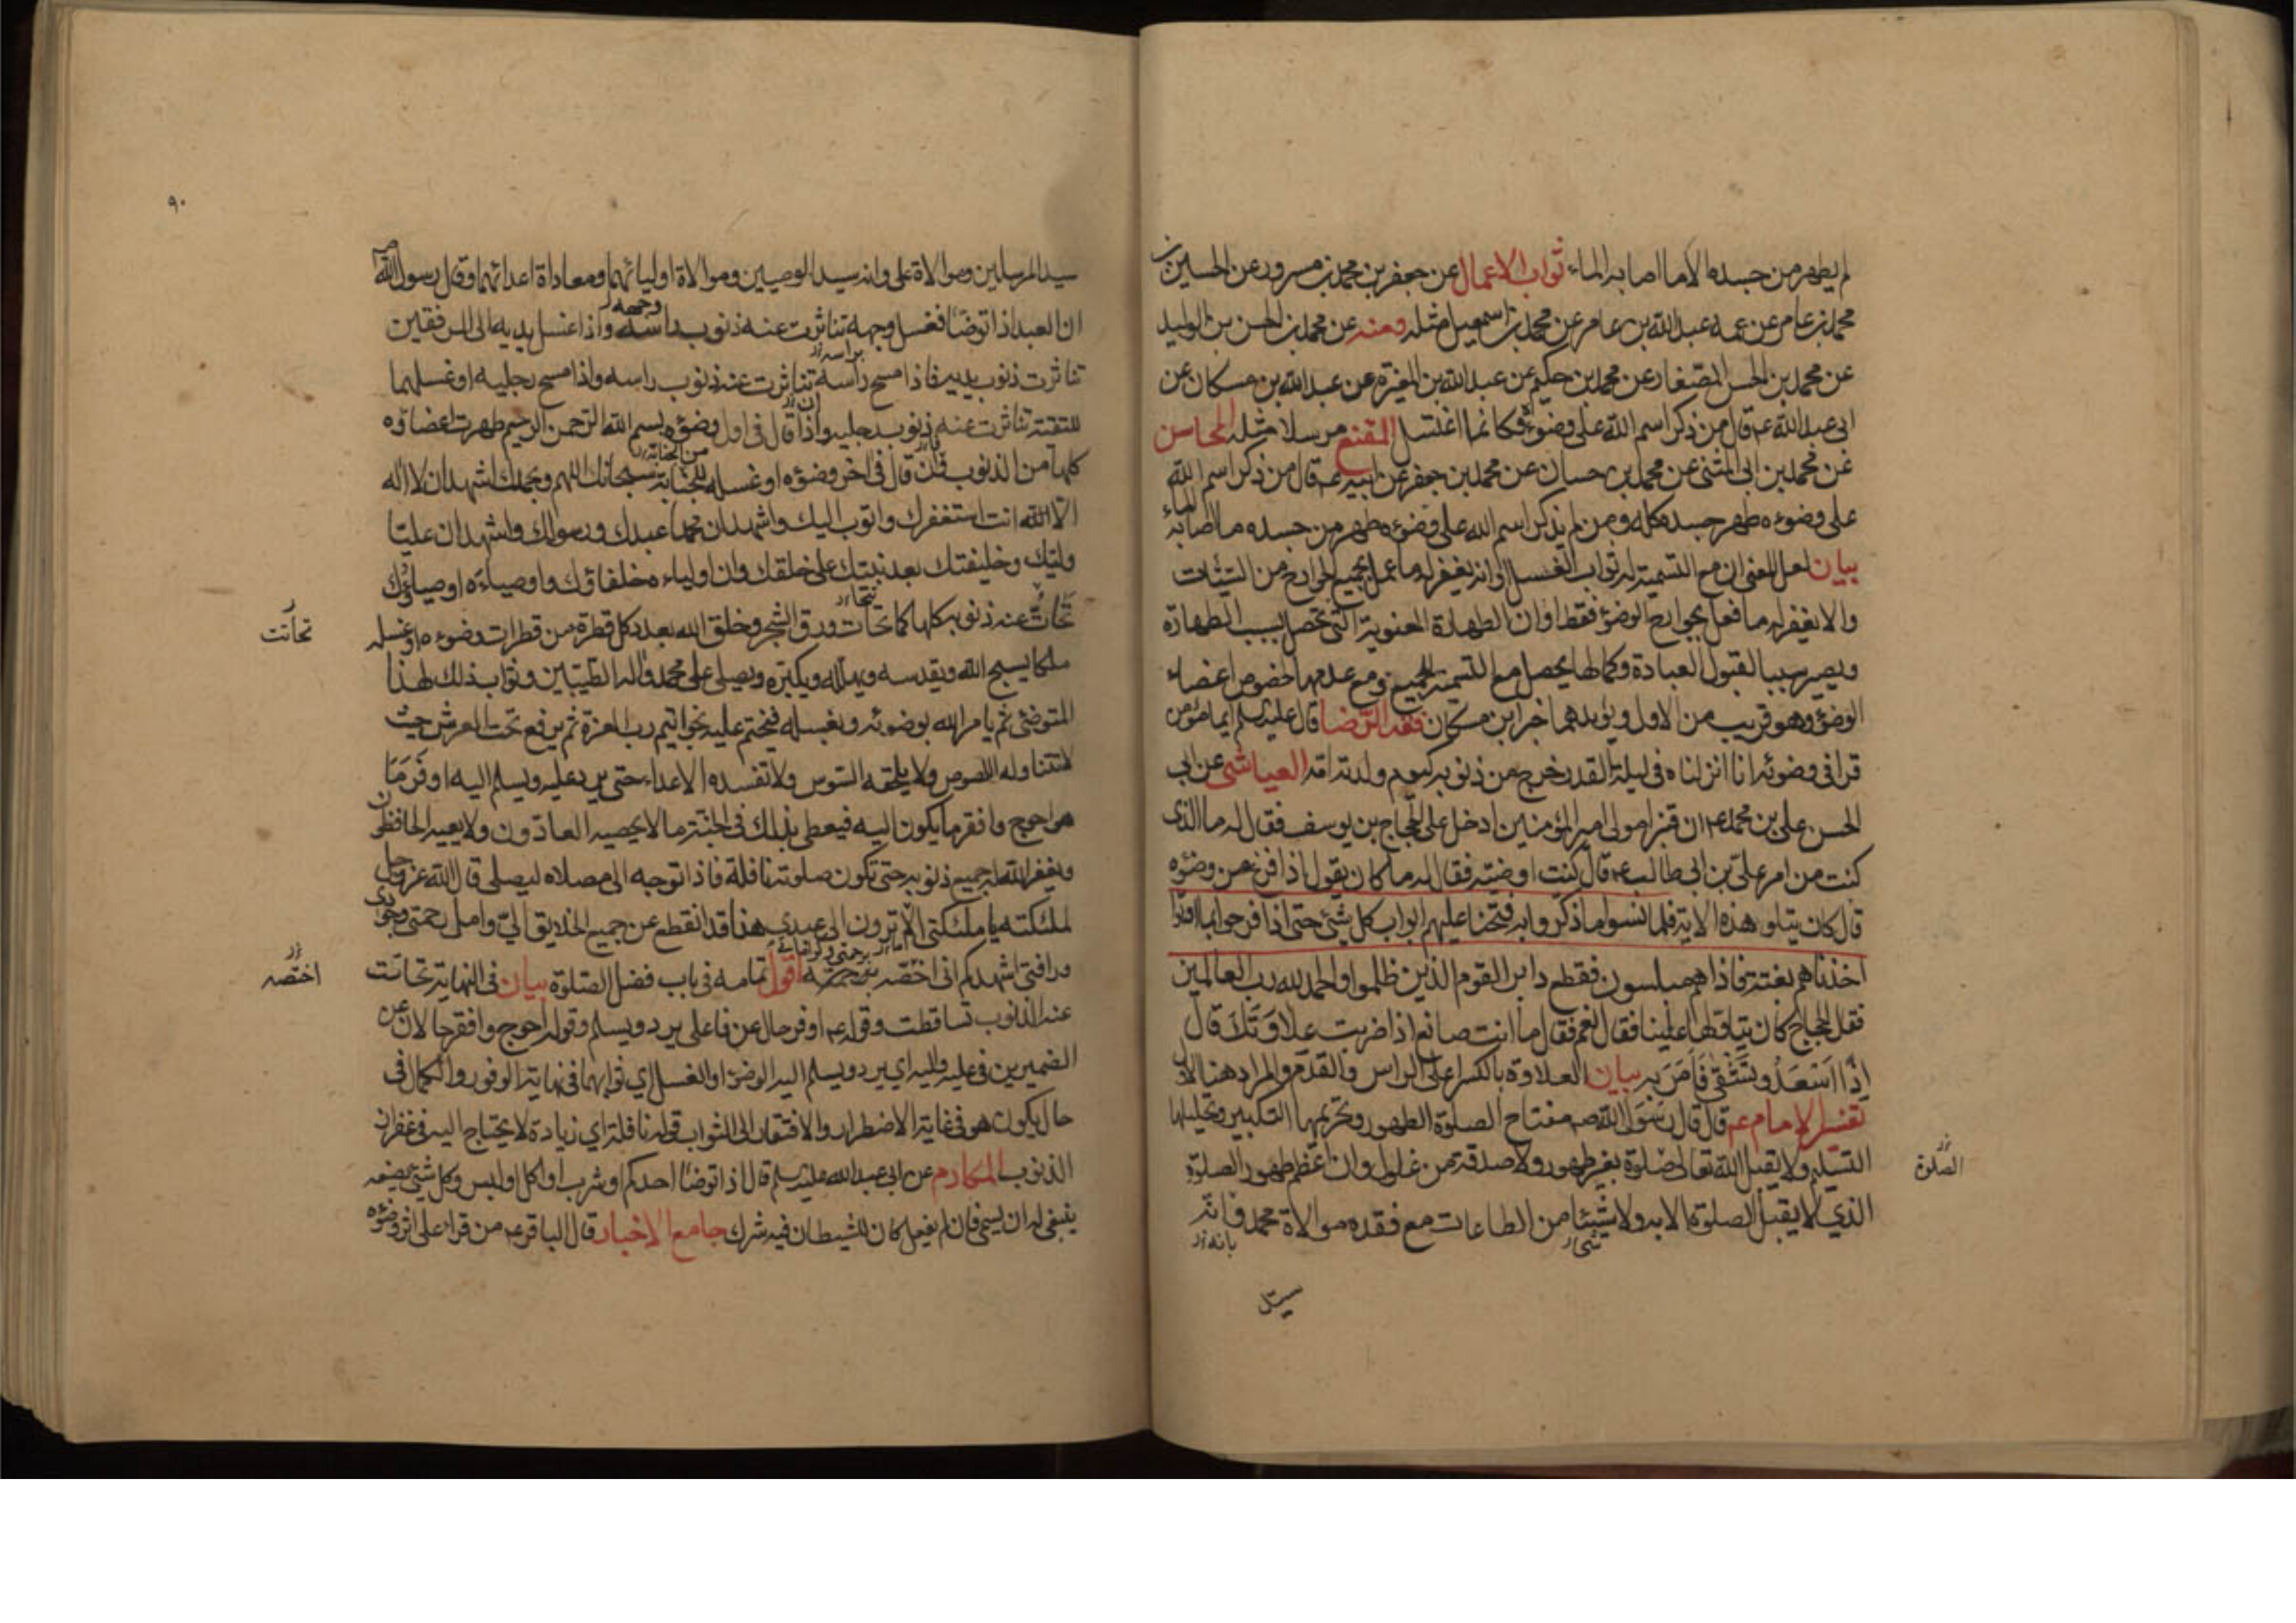 لم يطهر من جسده الا ما اصابه الماء ثواب الاعمال عن جعفر بن محمد بن مسرور عن الحسين بن
محمد بن عامر عن عمه عبد الله بن عامر عن محمد بن اسمعيل مثله ومنه عن محمد بن الحسن بن الوليد
عن محمد بن الحسن الصفار عن محمد بن حكيم عن عبد الله بن المغيرة عن عبد الله بن مسكان عن
ابي عبد الله ع قال من ذكر اسم الله على وضوئه فكانما اغتسل المقنع مرسلا مثله المحاسن
عن محمد بن ابي المثنى عن محمد بن حسان عن محمد بن جعفر عن ابيه ع قال من ذكر اسم الله
على وضوءه طهر جسده كله ومن لم يذكر اسم الله على وضوءه طهر من جسده ما اصابه الماء
بيان لعل المعنى ان مع التسمية له ثواب الغسل او انه يغفر له ما عمل بجميع الجوارح من السيئات
والا يغفر له ما فعل بجوارح الوضوء فقط او ان الطهارة المعنوية التي تحصل بسبب الطهارة
ويصير سببا لقبول العبادة وكمالها يحصل مع التسمية للجميع ومع عدمها لخصوص اعضاء
الوضوء وهو قريب من الاول ويؤيدهما خبر ابن مسكان فقه الرضا قال عليه السلم ايما مؤمن
قرا في وضوئه انا انزلناه في ليلة القدر خرج من ذنوبه كيوم ولدته امه العياشي عن ابي
الحسن علي بن محمد ع ان قنبرا مولى امير المؤمنين ادخل على الحجاج بن يوسف فقال له ما الذى
كنت من امر علي بن ابي طالب ع قال كنت اوضيه فقال له ما كان يقول اذا فرغ من وضوءه
قال كان يتلو هذه الاية فلما نسوا ما ذكروا به فتحنا عليهم ابواب كل شيئ حتى اذا فرحوا بما اوتوا
اخذناهم بغتة فاذا هم مبلسون فقطع دابر القوم الذين ظلموا والحمد لله رب العالمين
فقال الحجاج كان يتاولها علينا فقال نعم فقال ما انت صانع اذا ضربت علاوتك قال
اذا اسعد وتشقى فامر به بيان العلاوة بالكسر اعلى الراس والقدم والمراد هنا الاول
تفسير الامام ع قال قال رسول الله ص مفتاح الصلوة الطهور وتحريمها التكبير وتحليلها
التسليم ولا يقبل الله تعالى صلوة بغير طهور ولا صدقة من غلول وان اعظم طهور الصلوة
الصلوة
الذي لا يقبل الصلوة الا به ولا شيئا من الطاعات مع فقده موالاة محمد وانه
شئ بانه
سيد
٩٠
سيد المرسلين وموالاة على وانه سيد الوصيين وموالاة اوليائهما ومعاداة اعدائهما وقال رسول الله ص
ان العبد اذا توضا فغسل وجهه تناثرت عنه ذنوب راسه وجهه واذا غسل يديه الى المرفقين
تناثرت ذنوب يديه فاذا مسح راسه براسه تناثرت عنه ذنوب راسه واذا مسح رجليه او غسلهما
للتقية تناثرت عنه ذنوب رجليه واذا ان قال في اول وضوءه بسم الله الرحمن الرحيم طهرت اعضاؤه
كلها من الذنوب فان قال في اخر وضوءه او غسله للجنابة من الجنابة سبحانك اللهم وبحمدك اشهد ان لا اله
الا الله انت استغفرك واتوب اليك واشهد ان محمدا عبدك ورسولك واشهد ان عليا
وليك وخليفتك بعد نبيك على خلقك وان اولياءه خلفاؤك واوصياءه اوصياؤك
تحات عنه ذنوبه كلها كما تحات ورق الشجر وخلق الله بعدد كل قطرة من قطرات وضوءه او غسله
تحاتت
ملكا يسبح الله ويقدسه ويهلله ويكبره ويصلى على محمد واله الطيبين وثواب ذلك لهذا
المتوضئ ثم يامر الله بوضوئه وبغسله فيختم عليه بخواتيم رب العزة ثم يرفع تحت العرش حيث
لا تتناوله اللصوص ولا يلحقه السوس ولا تفسده الاعداء حتى يرد عليه ويسلم اليه اوفر ما
هو احوج وافقر ما يكون اليه فيعطى بذلك في الجنة ما لا يحصيه العادون ولا يعيه الحافظون
ويغفر الله له جميع ذنوبه حتى تكون صلوته نافلة فاذا توجه الى مصلاه ليصلى قال الله عز وجل
لملئكته يا ملئكتي الا ترون الى عبدي هذا قد انقطع عن جميع الخلايق الي وامل رحمتي وجودي
ورافتي اشهدكم اني اختصه برحمتي وكراماتي اقول تمامه في باب فضل الصلوة بيان في النهاية تحاتت
اختصه
عنه الذنوب تساقطت وقوله ع اوفر حال عن فاعلى يرد ويسلم وقوله احوج وافقر حالان عن
الضميرين في عليه واليه اي يرد ويسلم اليه الوضوء او الغسل اي ثوابهما في نهاية الوفور والكمال في
حال يكون هو في غاية الاضطرار والافتقار الى الثواب قوله نافلة اي زيادة لا يحتاج اليه في غفران
الذنوب المكارم عن ابي عبد الله عليه السلم قال اذا توضا احدكم او شرب او اكل او لبس وكل شيئ يصنعه
ينبغي له ان يسمي فان لم يفعل كان للشيطان فيه شرك جامع الاخبار قال الباقر ع من قرا على اثر وضوءه